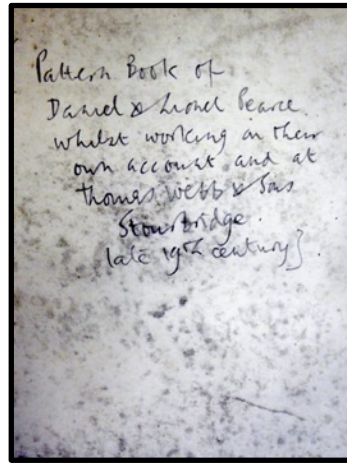 Pattern Book of
Daniel & Lionel Pearce
whilst working on their
own account and at
Thomas Webb & Sons
Stourbridge.
late 19th century].